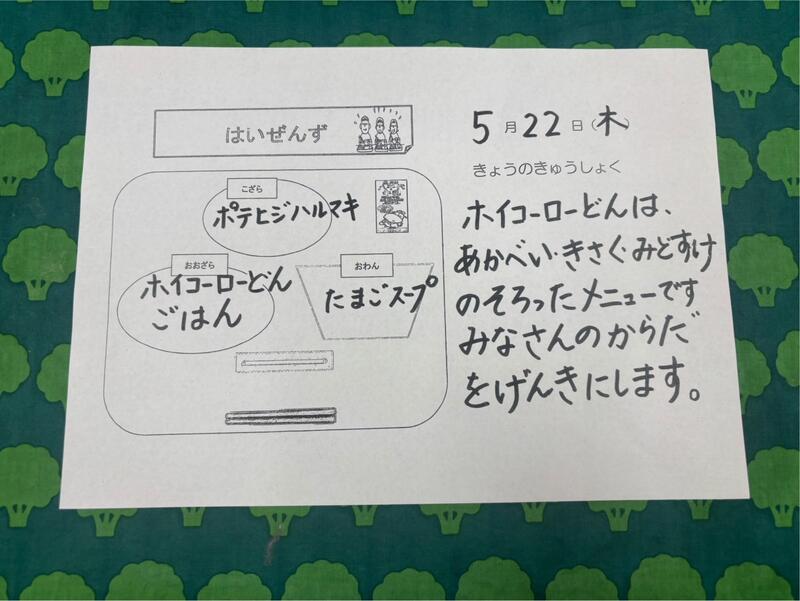 はいぜんず
こざら
ポテヒジハルマキ
おおざら
ホイコーローどん
ごはん
おわん
たまごスープ
5月22日(木)
きょうのきゅうしょく
ホイコーローどんは、
あかべい・きさく・みどすけ
のそろったメニューです
みなさんのからだ
をげんきにします。